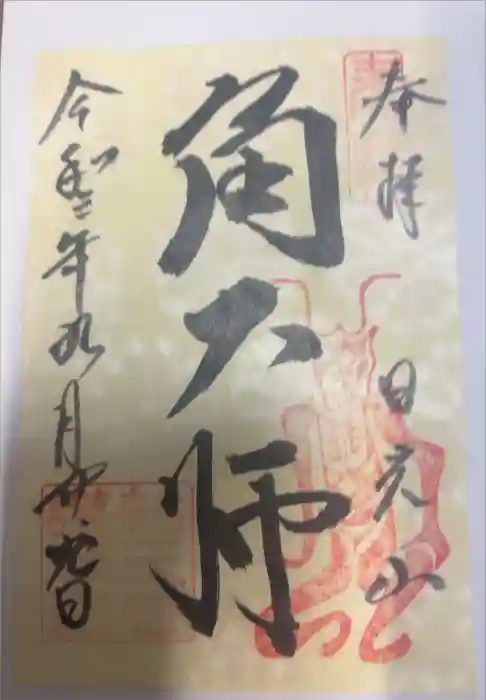 奉拝
日光山
角大師
令和二年九月廿九日